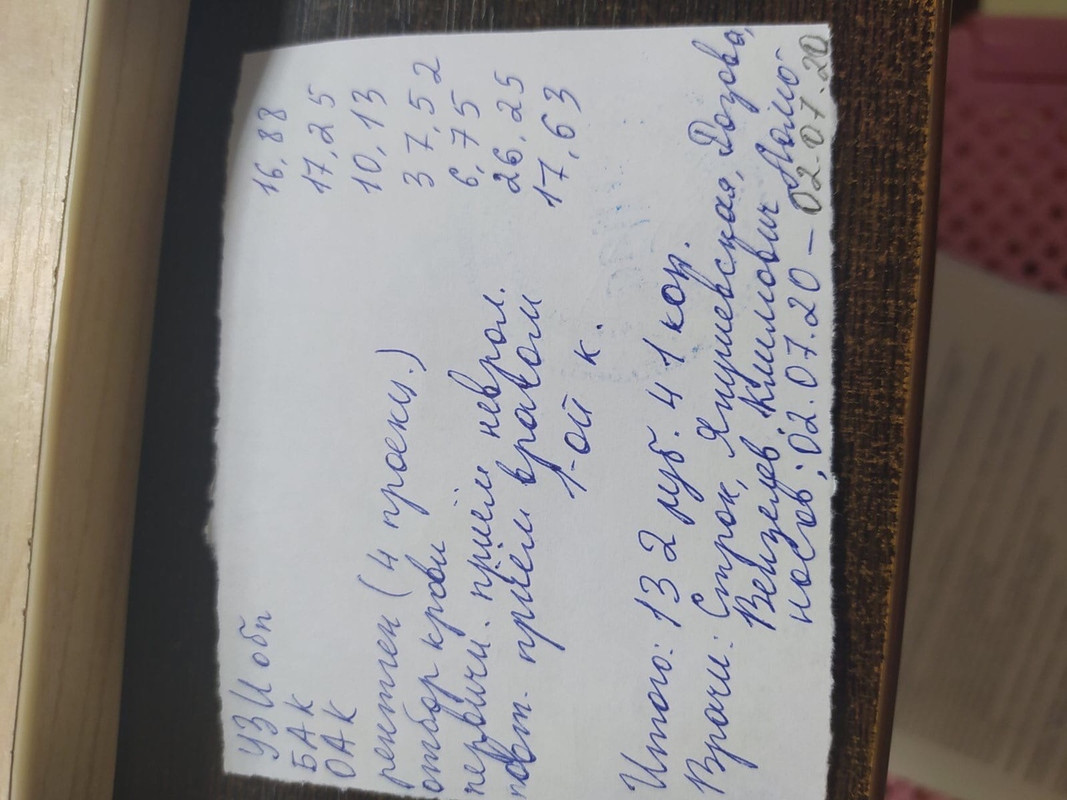 УЗИ обп 16,88
БАК 17,25
ОАК 10,13
рентген (4 проекц.) 37,52
отбор крови 6,75
первичн. приём неврол. 26,25
повт. приём врачом 17,63
1-ой к.
Итого: 132 руб. 41 коп.
Врачи: Строк, Япушевская, Дозова,
Венцлов, Климович, Ломо-
носов; 02.07.20 – 02.07.20